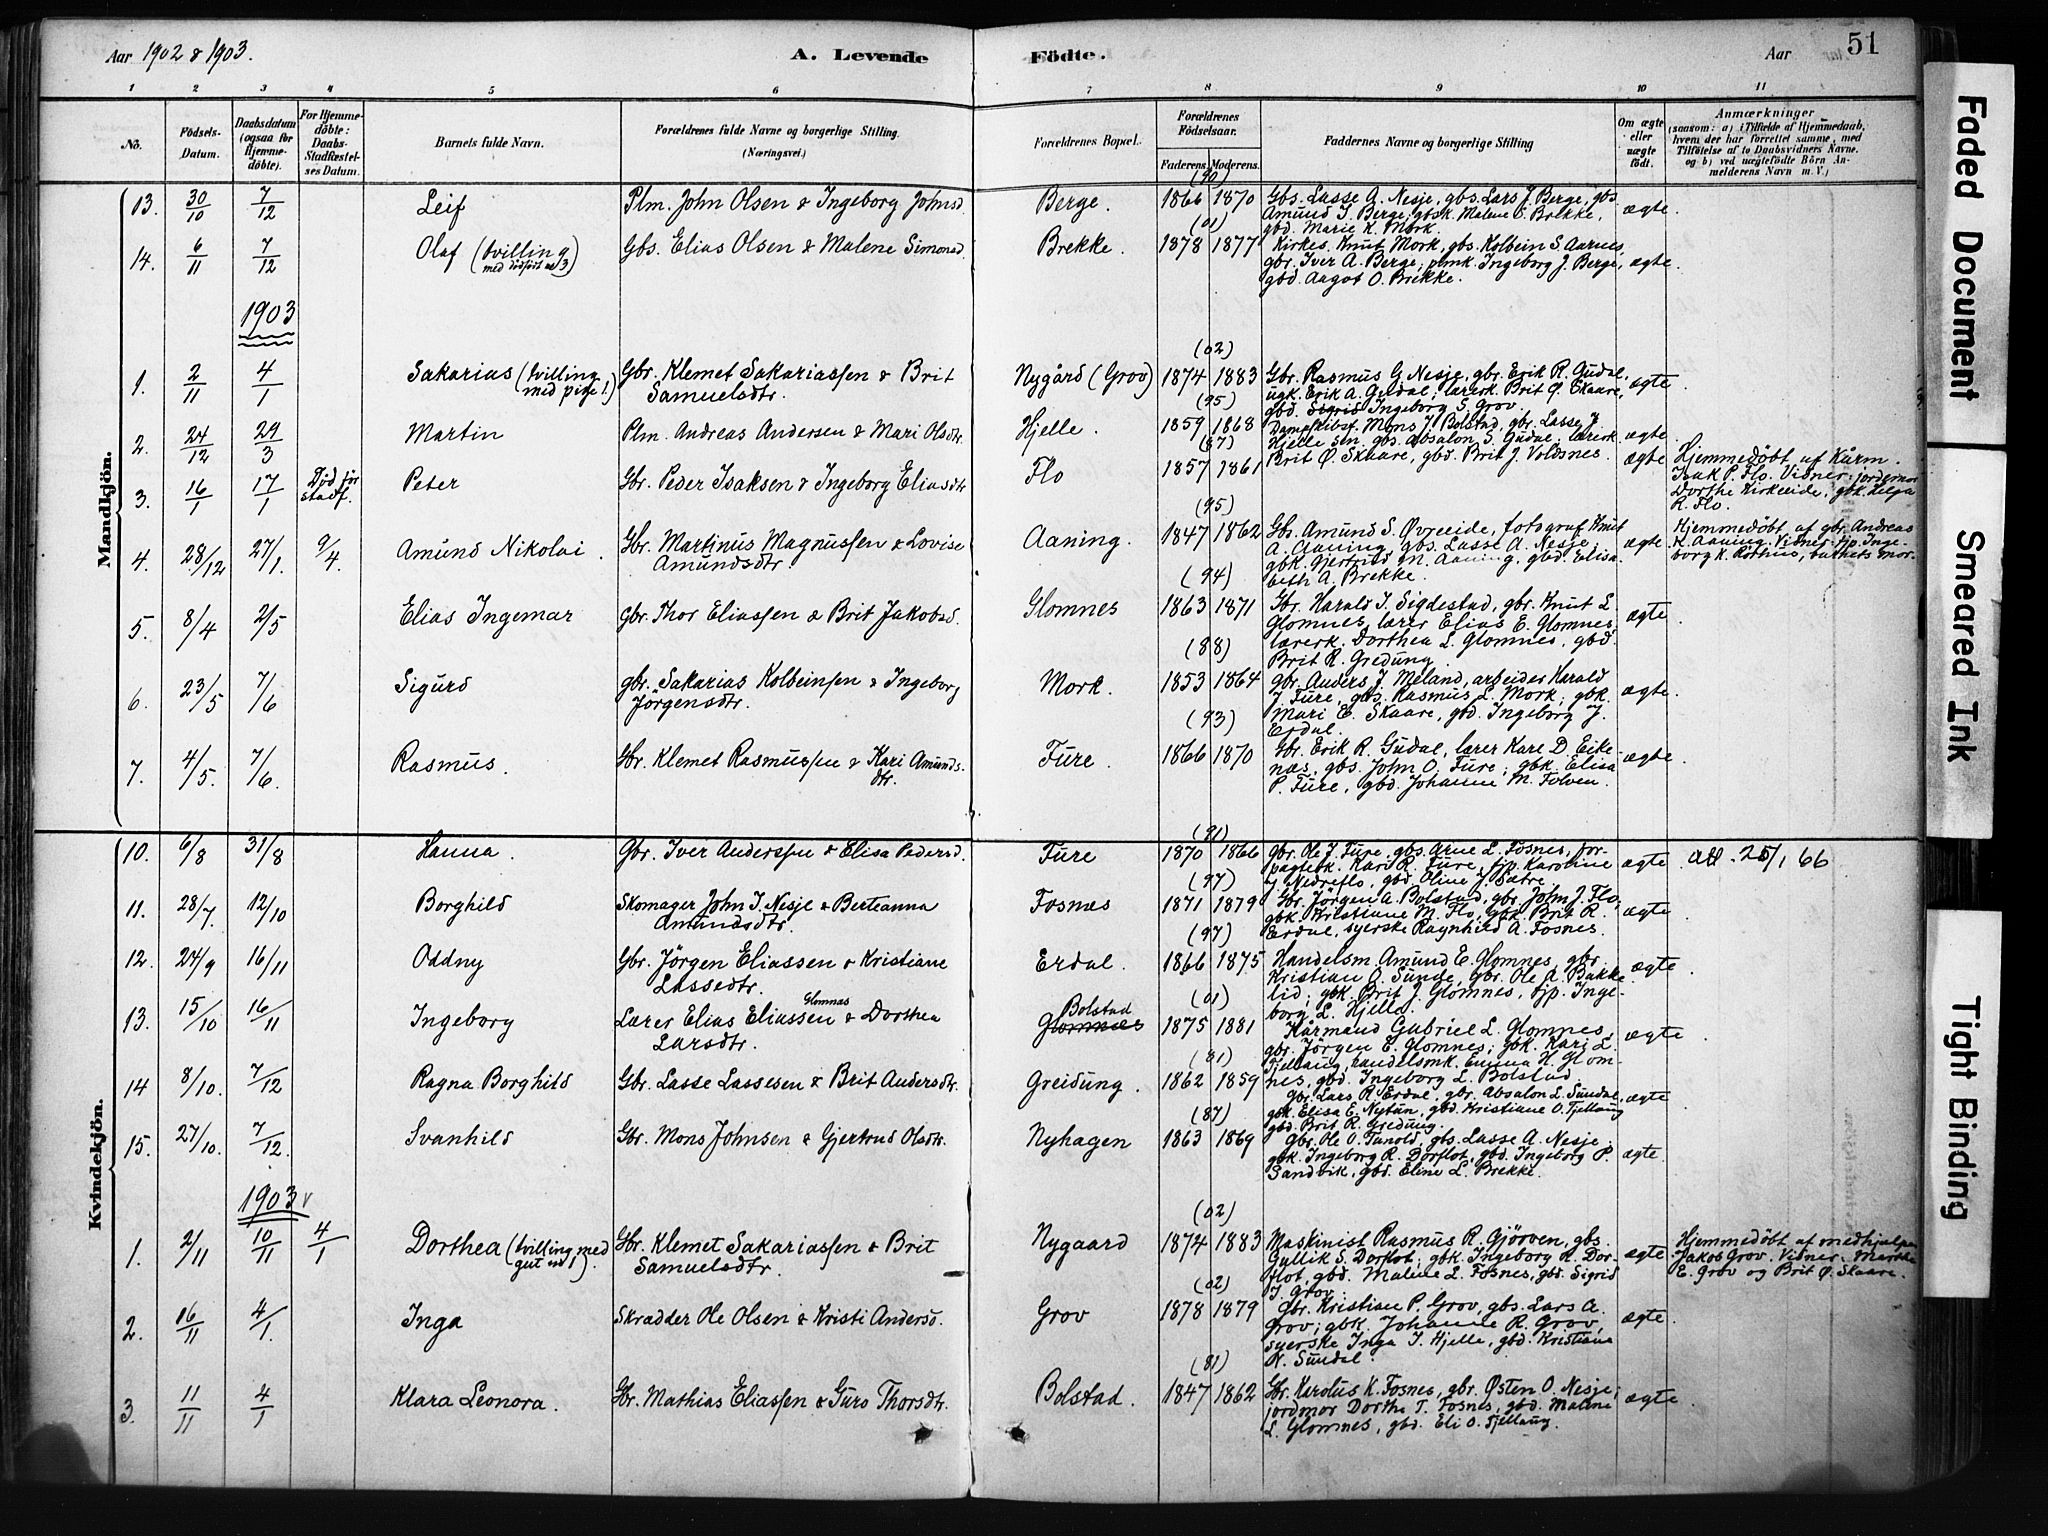 Aar 1902 & 1903.
A. Levende Födte.
Aar
51
1 2 3 4 5 6 7 8 9 10 11
No.
Födsels-
Datum.
Daabsdatum
(ogsaa for
Hjemme-
döbte).
For Hjemme-
döbte:
Daabs-
Stadfæstel-
ses Datum.
Barnets fulde Navn.
Forældrenes fulde Navne og borgerlige Stilling.
(Næringsvei.)
Forældrenes Bopæl.
Forældrenes
Födselsaar.
Faderens. Moderens.
Faddernes Navne og borgerlige Stilling
Om ægte
eller
uægte
födt.
Anmærkninger
(saasom: a) i Tilfælde af Hjemmedaab,
hvem der har forrettet samme, med
Tilföielse af to Daabsvidners Navne,
og b) ved uægtefödte Börn An-
melderens Navn m. V.)
Mandkjön.
(90)
13. 30/10 7/12 Leif Plm. John Olsen & Ingeborg Johnsd. Berge. 1866 1870 Gbs. Lasse A. Nesje, gbs. Lars J. Berge, gbs.
Amund I. Berge; gbsk. Malene S. Brekke,
gbd. Marie K. Mork. ægte.
(01)
14. 6/11 7/12 Olaf (tvilling
med dødfødt no 3) Gbs. Elias Olsen & Malene Simonsd. Brekke. 1878 1877 Kirkes. Knut Mork, gbs. Kolbein S. Aarnes,
gbr. Iver A. Berge; plmk. Ingeborg J. Berge,
gbd. Aagot O. Brekke. ægte.
1903
(02)
1. 2/11 4/1 Sakarius (tvilling
med pige 1.) Gbr. Klemet Sakariassen & Brit
Samuelsdtr. Nygård (Grov) 1874 1883 Gbr. Rasmus G. Nesje, gbr. Erik R. Gudal,
ugk. Erik A. Gudal; lærerk. Brit Ø. Skaare,
gbd. Sigrid Ingeborg S. Grov. ægte.
(95)
2. 24/12 29/3 Martin Plm. Andreas Andersen & Mari Olsdtr. Hjelle. 1859 1868 Dampskibsf. Mons J. Bolstad, gbr. Lasse J.
Hjelle sen. gbs. Absalon S. Gudal; lærerk.
Brit Ø. Skaare, gbd. Brit J. Voldsnes. ægte.
(87)
3. 16/1 17/1 Død før
stadf. Peter Gbr. Peder Isaksen & Ingeborg Eliasdtr Flo 1857 1861 ægte Hjemmedøbt af Kårm.
Isak P. Flo. Vidner: jordemor
Dorthe Kirkeeide, gbk. Helga
R. Flo.
(95)
4. 28/12 27/1. 9/4. Amund Nikolai. Gbr. Martinus Magnussen & Lovise
Amundsdtr. Aaning. 1847 1862 Gbs. Amund S. Øvreeide, fotograf Knut
A. Aaning, gbs. Lasse A. Nesje,
gbk. Gjertrud M. Aaning, gbd. Elisa-
beth A. Brekke. ægte Hjemmedøbt af gbr. Andreas
K. Aaning. Vidner: tjp. Inge-
borg K. Råthus, barnets mor.
(94)
5. 8/4 2/5 Elias Ingemar Gbr. Thor Eliassen & Brit Jakobsd. Glomnes 1863 1871 Gbr. Harald I. Sigdestad, gbr. Knut L.
Glomnes, lærer Elias E. Glomnes,
lærerk. Dorthea L. Glomnes, gbd.
Brit R. Gredung. ægte.
(88)
6. 23/5 7/6 Sigurd gbr. Sakarias Kolbeinsen & Ingeborg
Jörgensdtr. Mork. 1853 1864 gbr. Anders J. Meland, arbeider Harald
J. Fure, gbs. Rasmus L. Mork; gbk.
Mari E. Skaare, gbd. Ingeborg J.
Erdal. ægte.
(93)
7. 4/5. 7/6. Rasmus. Gbr. Klemet Rasmussen & Kari Amunds-
dtr. Fure. 1866 1870 Gbr. Erik R. Gudal, lærer Kare D. Eike-
næs, gbs. John O. Fure; gbk. Elisa
P. Fure, gbd. Johanne M. Folven. ægte.
Kvindekjön.
(91)
10. 6/8 31/8 Hanna. Gbr. Iver Anderssen & Elisa Pedersd. Fure 1870 1866 Gbr. Ole J. Fure, gbs. Arne L. Fosnes, for-
pagterk. Kari R. Fure, tjp. Karoline
J. Nedreflo, gbd. Oline J. Sætre. ægte att. 25/1 66
(97)
11. 28/7. 12/10 Borghild Skomager John I. Nesje & Berteanna
Amundsdtr. Fosnæs 1871 1879 Gbr. Jörgen A. Bolstad, gbr. John J. Flo,
gbk. Kristiane M. Flo, gbd. Brit R.
Erdal, syerske Ragnhild A. Fosnes. ægte.
(97)
12. 24/9 16/11 Oddny Gbr. Jörgen Eliassen & Kristiane
Lassedtr. Erdal. 1866 1875 Handelsm. Amund E. Glomnes, gbr.
Kristian O. Sunde, gbr. Ole A. Bakke-
lid; gbk. Brit J. Glomnes, tjp. Inge-
borg L. Hjelle. ægte.
(01)
13. 15/10 16/11 Ingeborg Lærer Elias Eliassen Glomnæs & Dorthea
Larsdtr. Bolstad
Glomnæs 1875 1881 Kårmand Gabriel L. Glomnes,
gbr. Jörgen E. Glomnes; gbk. Kari L.
Tjellaug, handelsmk. Emma H. Glom-
nes, gbd. Ingeborg L. Bolstad ægte.
(81)
14 8/10. 7/12 Ragna Borghild Gbr. Lasse Lassesen & Brit Andersdtr. Greidung. 1862 1859 Gbr. Lars R. Erdal, gbr. Absalon L. Sundal,
gbk. Elisa E. Nytun, gbd. Kristiane O. Tjellaug
gbd. Brit R. Gredung. ægte
(87)
15. 27/10. 7/12. Svanhild Gbr. Mons Johnsen & Gjertrud Olsdtr. Nyhagen 1863 1869 Gbr. Ole O. Tunold, gbs. Lasse A. Nesje;
gbk. Ingeborg R. Dorflot, gbd. Ingeborg P.
Sandvik, gbd. Eline L. Brekke. ægte.
1903
(02)
1. 2/11 10/11 4/1 Dorthea (tvilling med
gut no 1). Gbr. Klemet Sakariassen & Brit
Samuelsdtr. Nygaard 1874 1883 Maskinist Rasmus R. Gjörven, gbs.
Gullik S. Dorflot; gbk. Ingeborg R. Dor-
flot, gbd. Malene L. Fosnes, gbd. Sigrid
J. Grov. ægte Hjemmedøbt af medhjelper
Jakob Grov. Vidner: Marthe
E. Grov og Brit Ø. Skaare.
(02)
2. 16/11 4/1. Inga Skrædder Ole Olsen & Kristi Andersd. Grov 1878 1879 Gbr. Kristian P. Grov, gbs. Lars A.
Grov; gbk. Johanne R. Grov,
syerske Inga I. Hjelle, gbd. Kristiane
N. Sundal. ægte.
(81)
3. 11/11 4/1 Klara Leonora. Gbr. Mathias Eliassen & Guro Thorsdtr. Bolstad. 1847 1862 Gbr. Karolus K. Fosnes, gbr. Østen O. Nesje;
jordmor Dorthe T. Fosnes, gbd. Malene
L. Glomnes, gbd. Eli O. Tjellaug. ægte.
Faded Document
Smeared Ink
Tight Binding